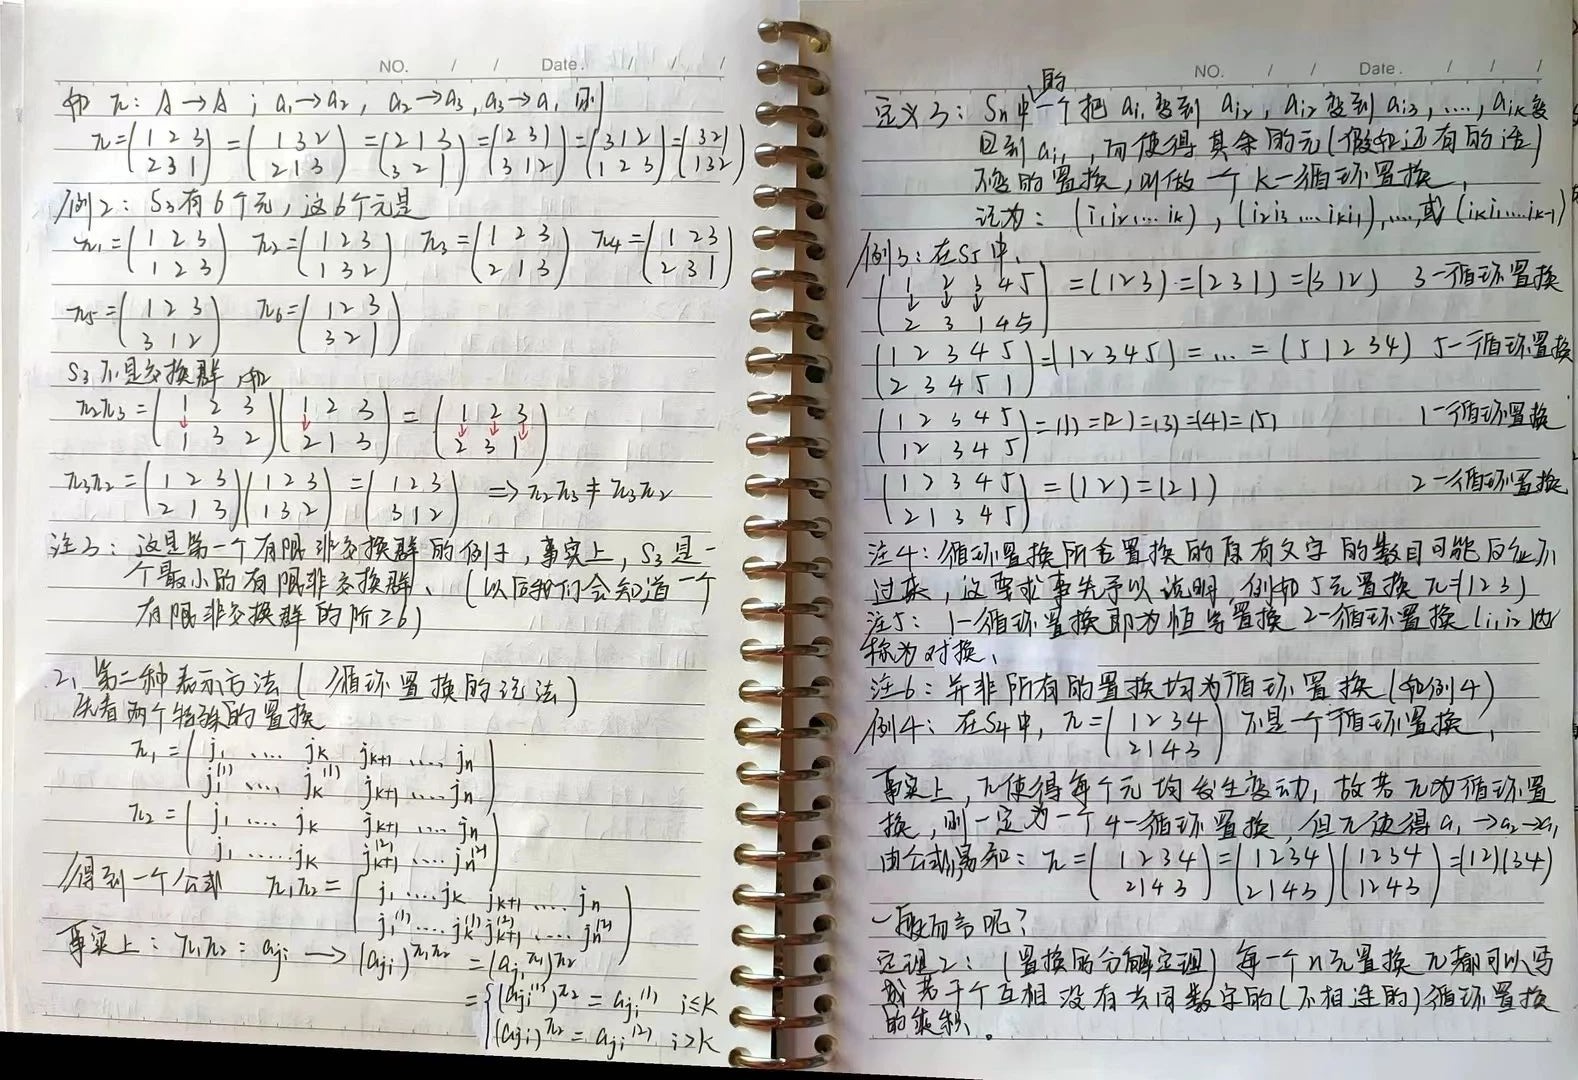 NO. / / Date. / / /
如 π: A→A ; a₁→a₂, a₂→a₃, a₃→a₁ 则
π=(1 2 3 / 2 3 1)=(1 3 2 / 2 1 3)=(2 1 3 / 3 2 1)=(2 3 1 / 3 1 2)=(3 1 2 / 1 2 3)=(3 2 1 / 1 3 2)
例2: S₃有6个元,这6个元是
π₁=(1 2 3 / 1 2 3) π₂=(1 2 3 / 1 3 2) π₃=(1 2 3 / 2 1 3) π₄=(1 2 3 / 2 3 1)
π₅=(1 2 3 / 3 1 2) π₆=(1 2 3 / 3 2 1)
S₃不是交换群,如
π₂π₃=(1 2 3 / 1 3 2)(1 2 3 / 2 1 3)=(1 2 3 / 2 3 1)
π₃π₂=(1 2 3 / 2 1 3)(1 2 3 / 1 3 2)=(1 2 3 / 3 1 2) ⇒π₂π₃≠π₃π₂
注3: 这是第一个有限非交换群的例子,事实上,S₃是一
个最小的有限非交换群、(以后我们会知道一个
有限非交换群的阶≥6)
2、第二种表示方法(循环置换的记法)
先看两个特殊的置换
π₁=(j₁ .... jk jk+1 .... jn / j₁⁽¹⁾ .... jk⁽¹⁾ jk+1 .... jn)
π₂=(j₁ .... jk jk+1 .... jn / j₁ ..... jk jk+1⁽²⁾ .... jn⁽²⁾)
得到一个公式 π₁π₂=(j₁ .... jk jk+1 .... jn / j₁⁽¹⁾ .... jk⁽¹⁾ jk+1⁽²⁾ .... jn⁽²⁾)
事实上: π₁π₂: aji → (aji)^π₁π₂ =(aji^π₁)^π₂
={(aji⁽¹⁾)^π₂ = aji⁽¹⁾ i≤k
(aji)^π₂ = aji⁽²⁾ i>k
NO. / / Date. / / /
定义3: Sn中的一个把 ai₁变到 ai₂, ai₂变到ai₃, ...., aik变
回到 ai₁, 而使得其余的元(假如还有的话)
不变的置换,叫做一个 k-循环置换,
记为: (i₁i₂.... ik), (i₂i₃ .... iki₁),....,或 (iki₁....ik-1)
例3: 在S5中,
(1 2 3 4 5 / 2 3 1 4 5) =(1 2 3)=(2 3 1)=(3 1 2) 3-循环置换
(1 2 3 4 5 / 2 3 4 5 1)=(1 2 3 4 5)= ... =(5 1 2 3 4) 5-循环置换
(1 2 3 4 5 / 1 2 3 4 5)=(1)=(2)=(3)=(4)=(5) 1-循环置换
(1 2 3 4 5 / 2 1 3 4 5) =(1 2)=(2 1) 2-循环置换
注4: 循环置换所含置换的原有文字的数目可能
过来, 这要求事先予以说明, 例如5元置换 π=(1 2 3)
注5: 1-循环置换即为恒等置换 2-循环置换 (i₁i₂)也
称为对换、
注6: 并非所有的置换均为循环置换(如例4)
例4: 在S4中, π=(1 2 3 4 / 2 1 4 3) 不是一个循环置换,
事实上, π使得每个元均发生变动, 故若π为循环置
换, 则一定为一个4-循环置换, 但π使得a₁→a₂→a₁
由公式易知: π=(1 2 3 4 / 2 1 4 3)=(1 2 3 4 / 2 1 4 3)(1 2 3 4 / 1 2 4 3)=(12)(34)
一般而言呢?
定理2: (置换的分解定理) 每一个n元置换π都可以写
成若干个互相没有共同数字的(不相连的)循环置换
的乘积。